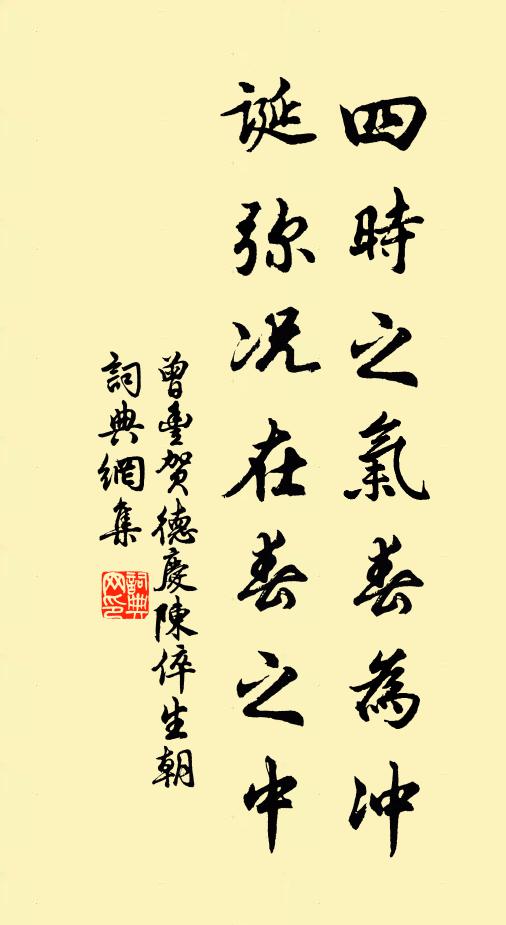 四時之氣春為沖
誕弥况在春之中
曾豊賀德慶陳倅生朝
詞典網集
詞典网印